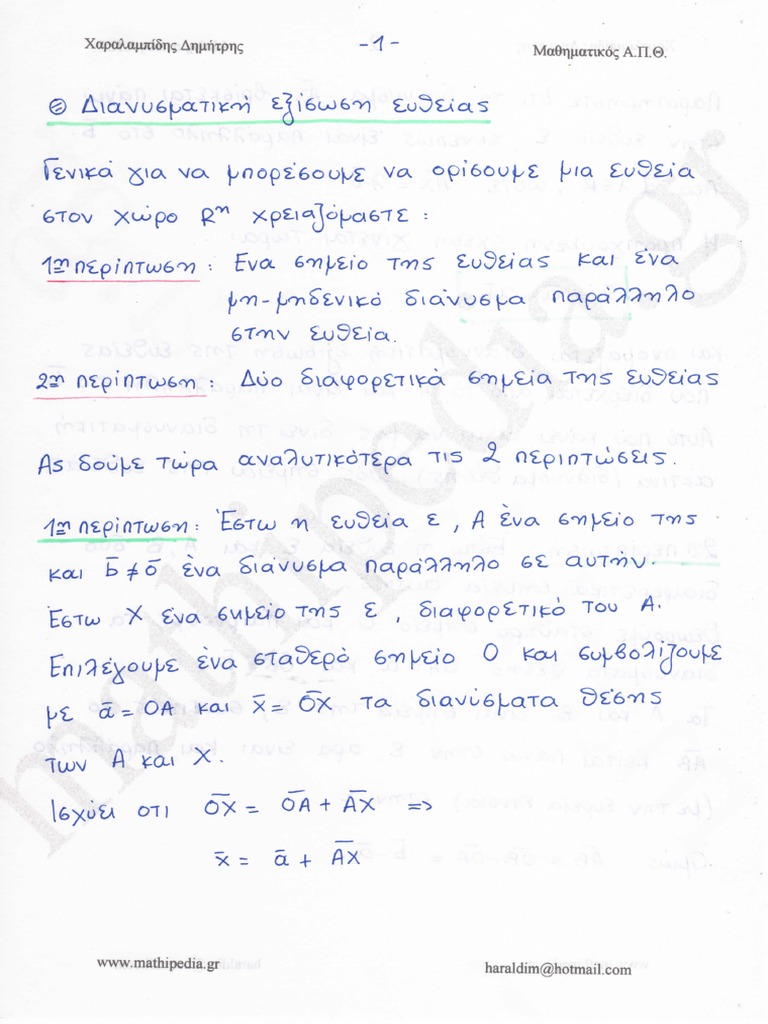 Χαραλαμπίδης Δημήτρης -1- Μαθηματικός Α.Π.Θ.
Διανυσματική εξίσωση ευθείας
Γενικά για να μπορέσουμε να ορίσουμε μια ευθεία
στον χώρο Rⁿ χρειαζόμαστε :
1η περίπτωση : Ενα σημείο της ευθείας και ένα
μη-μηδενικό διάνυσμα παράλληλο
στην ευθεία.
2η περίπτωση : Δύο διαφορετικά σημεία της ευθείας
Ας δούμε τώρα αναλυτικότερα τις 2 περιπτώσεις.
1η περίπτωση : Έστω η ευθεία ε, Α ένα σημείο της
και b̄ ≠ ō ένα διάνυσμα παράλληλο σε αυτήν.
Έστω Χ ένα σημείο της ε, διαφορετικό του Α.
Επιλέγουμε ένα σταθερό σημείο Ο και συμβολίζουμε
με ā = ŌΑ και x̄ = ŌX̄ τα διανύσματα θέσης
των Α και Χ.
Ισχύει οτι ŌX̄ = ŌĀ + ĀX̄ =>
x̄ = ā + ĀX̄
mathipedia.gr
www.mathipedia.gr haraldim@hotmail.com